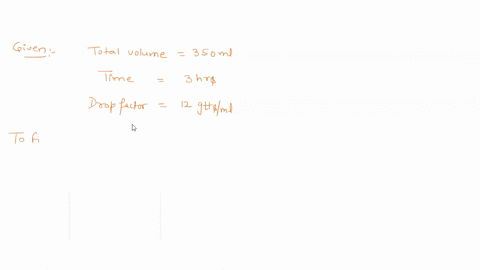 Given:- Total volume = 350 ml
Time = 3 hrs
Drop factor = 12 gtts/ml
To fi